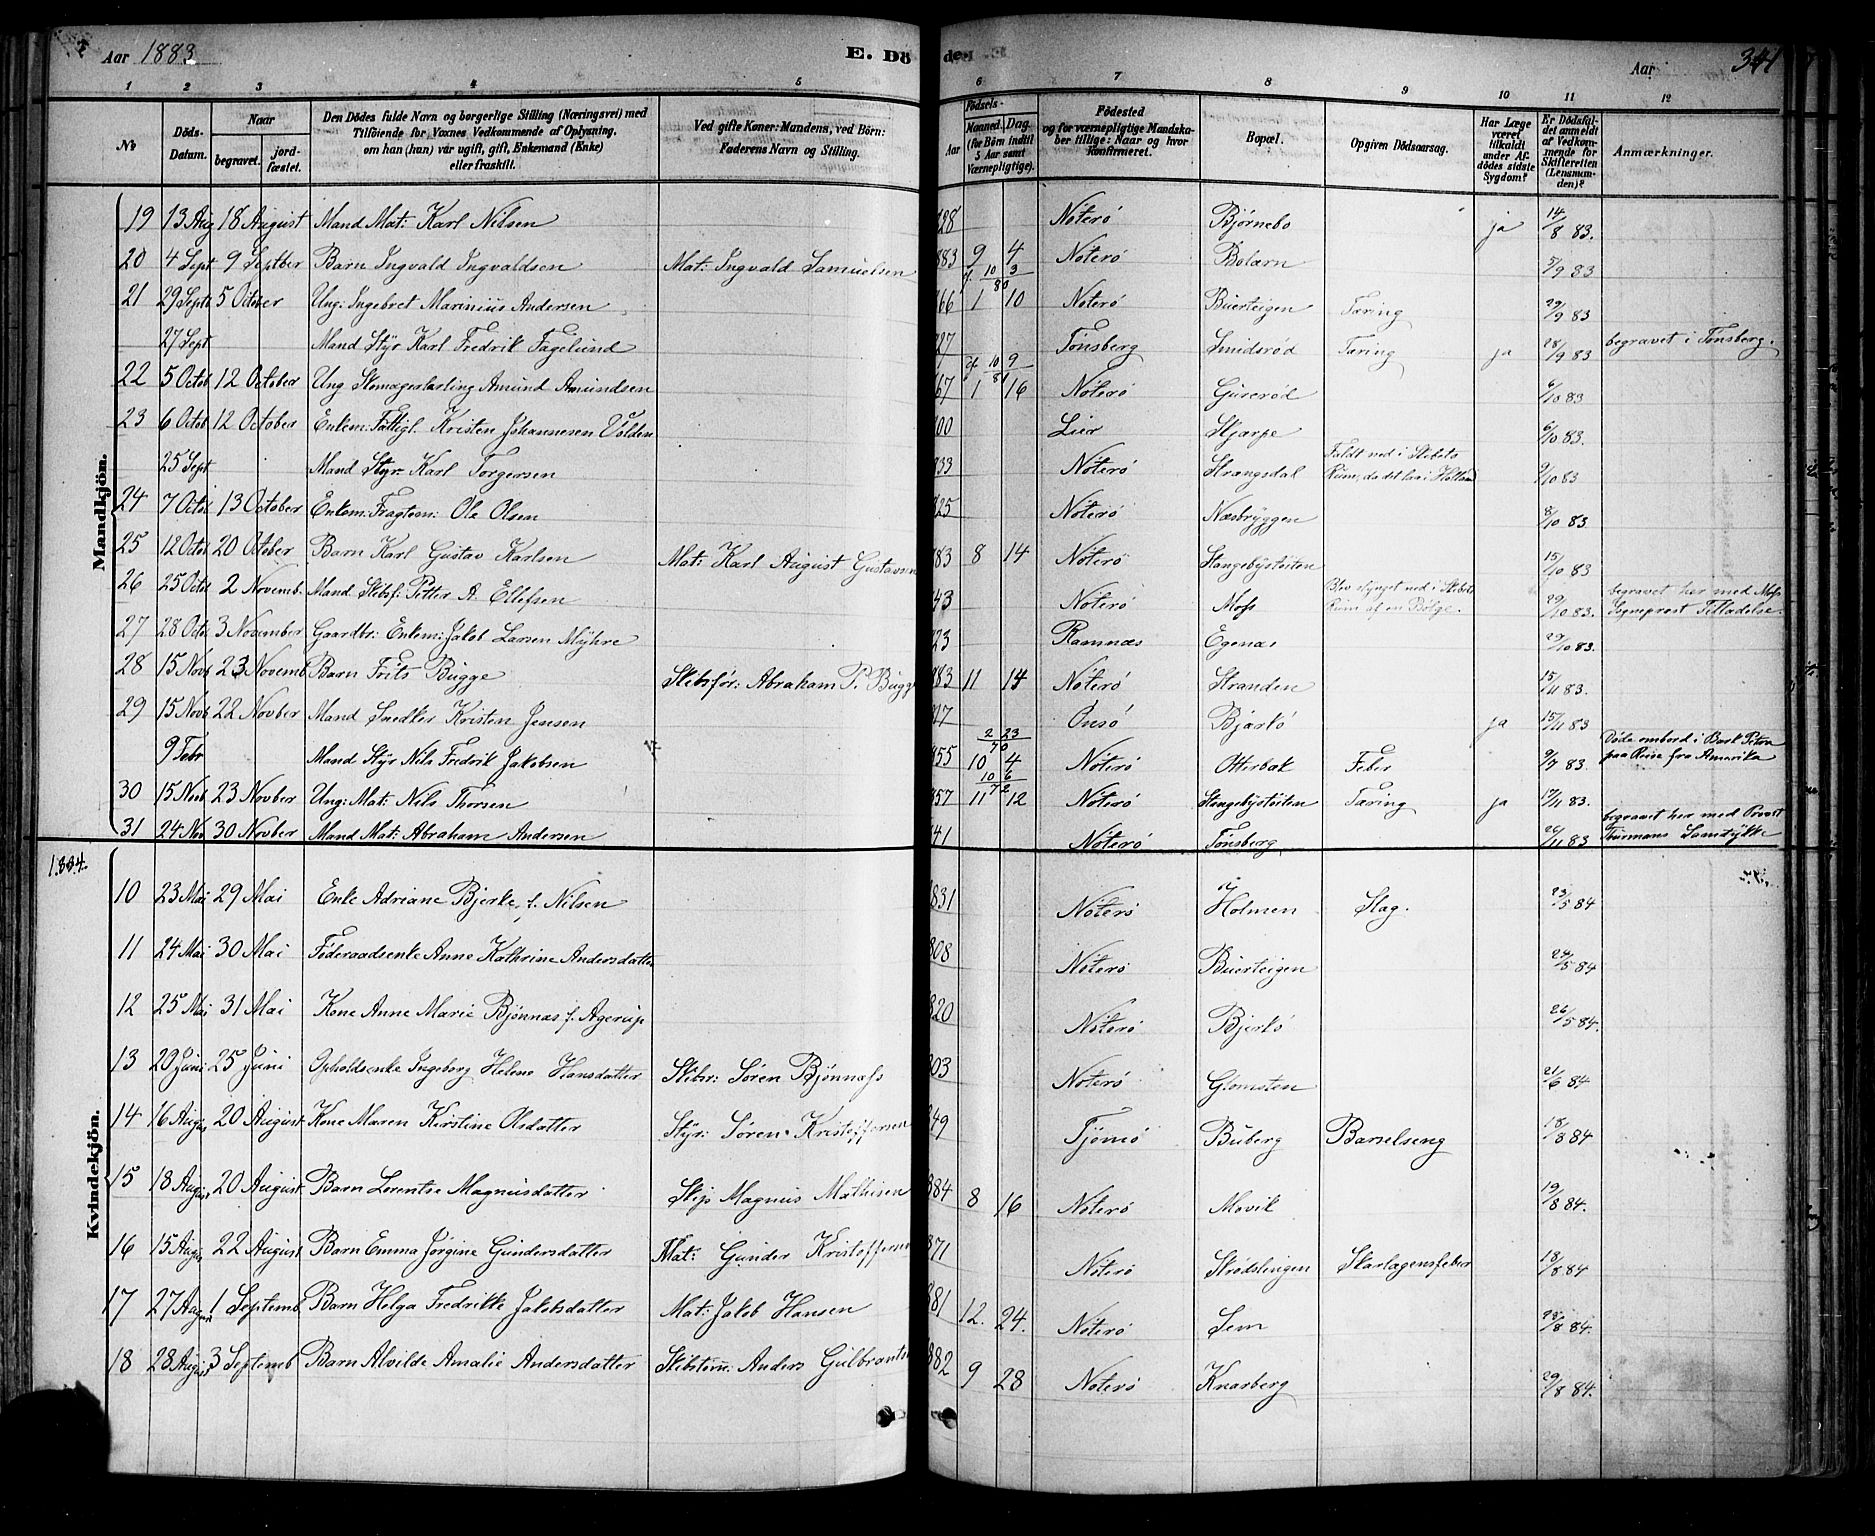 Aar 1883
E. Dö
de
341
Aar
1 2 3 4 5 6 7 8 9 10 11 12
No
Döds-Datum.
Naar
begravet.
jord-fæstet.
Den Dödes fulde Navn og borgerlige Stilling (Næringsvei) med
Tilföiende for Voxnes Vedkommende af Oplysning,
om han (hun) var ugift, gift, Enkemand (Enke)
eller fraskilt.
Ved gifte Koner: Mandens, ved Börn:
Faderens Navn og Stilling.
Födsels-
Aar
Maaned.
Dag.
(for Börn indtil 5 Aar samt Værnepligtige).
Födested
og for værnepligtige Mandska-
ber tillige: Naar og hvor
Konfirmeret.
Bopæl.
Opgiven Dödsaarsag.
Har Læge været tilkaldt under Af-dödes sidste Sygdom?
Er Dödsfal-det anmeldt af Vedkom-mende for Skifteretten (Lensman-den)?
Anmærkninger.
Mandkjön.
19 13 Aug 18 August Mand Mat: Karl Nilsen 28 Nöterö Bjørnebo ja 14/8 83.
20 4 Sept 9 Septber Barn Ingvald Ingvaldsen Mat: Ingvald Samuelsen 883 9 4 Nöterö Bolærn 5/9 83
f. 10/80 3
21 29 Septb 5 October Ung: Ingebret Marinius Andersen 66 1 10 Nöterö Buerteigen Tæring 29/9 83
27 Sept Mand Styr Karl Fredrik Fagelund 27 Tønsberg Smidsrød Tæring ja 28/9 83 begravet i Tønsberg.
10/81 9
22 5 Octob 12 October Ung Skomagerlærling Amund Amundsen 67 1 16 Nöterö Guserød 6/10 83
23 6 Octob 12 October Enkem: Fattigl. Kristen Johannesen Volden 00 Lier Skjærpe 6/10 83.
25 Sept Mand Styr. Karl Torgersen 33 Nöterö Strængsdal Faldt ned i Skibets Rum, da det laa i Holland 9/10 83
24 7 Octob 13 October Enkem: Fragtem: Ole Olsen 25 Nöterö Næsbryggen 8/10 83
25 12 Octob 20 October Barn Karl Gustav Karlsen Mat: Karl August Gustavsen 83 8 14 Nöterö Stangebyskoiten 15/10 83
26 25 Octo 2 Novemb. Mand Skibsf: Petter A. Ellefsen 43 Nöterö Moss Blev slynget ned i Skibets Rum af en Bölge. 29/10 83. begravet her med Moss Sogneprest Tilladelse.
27 28 Octo 3 November Gaardbr: Enkem: Jakob Larsen Myhre 23 Ramnæs Egenæs 29/10 83.
28 15 Novb 23 Novemb Barn Frits Bugge Skibsför: Abraham P. Bugge 83 11 14 Nöterö Stranden 15/11 83.
29 15 Novb 22 Novber Mand Snedker Kristen Jensen 27 Onsö Bjærkö ja 15/11 83
2/70 23
9 Febr Mand Styr Nils Fredrik Jakobsen 55 10 4 Nöterö Otterbæk Feber 9/7 83. Døde ombord i Bark Petra paa Reise fra Amerika
10/72 6
30 15 Novb 23 Novber Ung: Mat: Nils Thorsen 57 11 12 Nöterö Stangebyskoiten Tæring ja 17/11 83.
31 24 Nov 30 Novber Mand Mat: Abraham Andersen 41 Nöterö Tønsberg 26/11 83 begravet her med Provst Thurmans Samtykke
1884.
Kvindekjön.
10 23 Mai 29 Mai Enke Adriane Bjerke, f. Nilsen 831 Nöterö Holmen Slag. 23/5 84
11 24 Mai 30 Mai Føderaadsenke Anne Kathrine Andersdatter 808 Nöterö Buerteigen 24/5 84
12 25 Mai 31 Mai Kone Anne Marie Bjönnæs f. Agerup 820 Nöterö Bjerkö 26/5 84.
13 20 Juni 25 Juni Opholdsenke Ingeborg Helene Hansdatter Skibsr: Søren Bjønnæss 803 Nöterö Glomsten 21/6 84
14 16 Augus 20 August Kone Maren Kirstine Olsdatter Styr: Søren Kristoffersen 849 Tjömö Buberg Barselseng 18/8 84
15 18 August 20 August Barn Lorentse Magnusdatter Skip Magnus Mathisen 884 8 16 Nöterö Movik 19/8 84.
16 15 Aug. 22 August Barn Emma Jørgine Gundersdatter Mat: Gunder Kristofferse 871 Nöterö Skrødslingen Skarlagensfeber 18/8 84
17 27 August 1 Septemb. Barn Helga Fredrikke Jakobsdatter Mat: Jakob Hansen 881 12. 24. Nöterö Sem 28/8 84.
18 28 August 3 Septemb Barn Alvilde Amalie Andersdatter Skibstøm: Anders Gulbrants 882 9 28 Nöterö Knarberg 29/8 84.